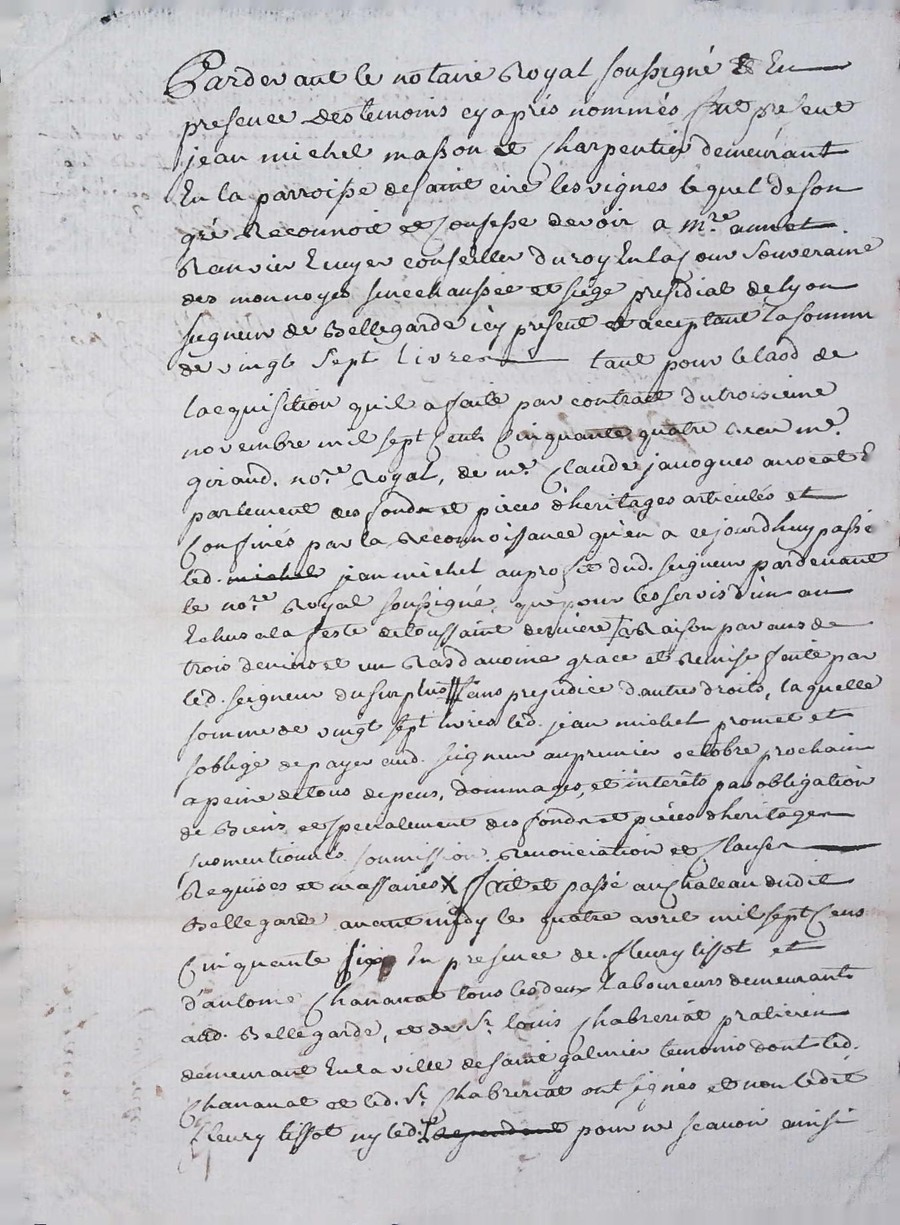 Pardevant le notaire Royal soussigné & En
presence des temoins cy après nommés fut présent
jean michel masson et Charpentier demeurant
En la parroisse de saint cire les vignes lequel de son
gré Reconnoit et Confesse devoir a mre. annet
Ranvier Ecuyer conseiller du roy En la Cour Souveraine
des monnoyes senechaussée et siége presidial de lyon
seigneur de Bellegarde icy present et acceptant la somme
de vingt Sept livres tant pour le laod de
lacquisition qu'il a faite par contrat du troisieme
novembre mil sept Cent Cinquante quatre me.
giraud. nore. Royal, de me. Claude janogues avocat E
parlement des fonds et pieces d'heritages articulés et
Confinés par la Reconnoissance qu'en a cejourdhuy passé
led. michel jean michel au profit dud. seigneur pardevant
le nore. Royal soussigné, que pour les servis d'un an
Echus a la feste de toussaint derniere a Raison par ans de
trois deniers et un Ras d'avoine grace et Remise faite par
led. seigneur du surplus sans prejudice d'autres droits, laquelle
somme de vingt sept livres led. jean michel promet et
soblige de payer aud. seigneur au premier octobre prochain
a peine de tous depens, dommages, et interêts par obligation
de Biens, et specialement des fonds et piéces d'heritages
susmentionnés soumission. Renonciation et Clauses
Requises et X fait et passé au Chateau dudit
Bellegarde avant midy le quatre avril mil sept Cens
Cinquante six En presence de fleury tissot et
d'antoine Chananat tous les deux laboureurs demeurants
aud. Bellegarde, et de Sr. louis Chabreriat praticien
demeurant En la ville de saint galmier temoins dont led.
Chananat et led. Sr. Chabreriat ont signés et non ledit
fleury tissot ny led. pour ne scavoir ainsi